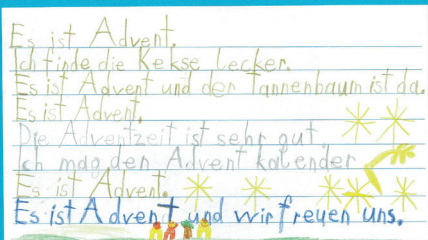 Es ist Advent.
Ich finde die Kekse lecker.
Es ist Advent und der Tannenbaum ist da.
Es ist Advent.
Die Adventzeit ist sehr gut.
Ich mag den Adventkalender
Es ist Advent.
Es ist Advent und wir freuen uns.